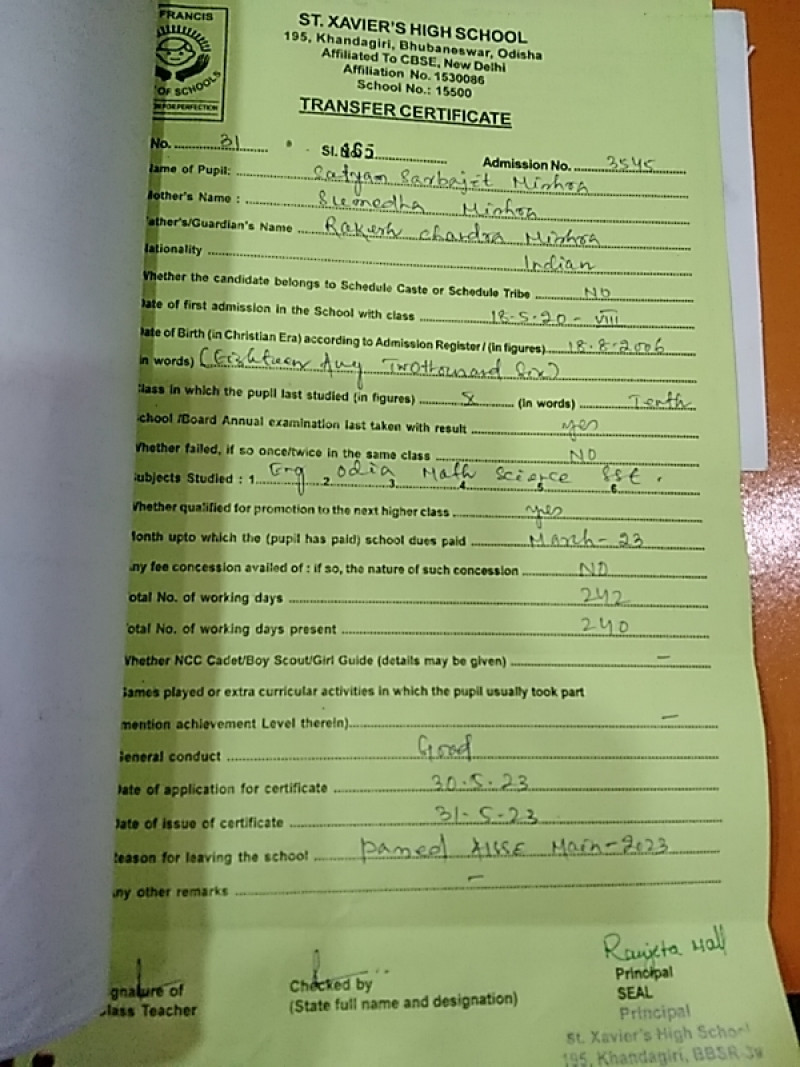 FRANCIS
OF SCHOOLS
FOR PERFECTION
ST. XAVIER'S HIGH SCHOOL
195, Khandagiri, Bhubaneswar, Odisha
Affiliated To CBSE, New Delhi
Affiliation No. 1530086
School No.: 15500
TRANSFER CERTIFICATE
No. 31 Sl. 465 Admission No. 3545
Name of Pupil: Satyam Sarbajit Mishra
Mother's Name : Sumedha Mishra
ather's/Guardian's Name Rakesh Chandra Mishra
Nationality Indian
Whether the candidate belongs to Schedule Caste or Schedule Tribe NO
Date of first admission in the School with class 18-5-20 - VIII
Date of Birth (in Christian Era) according to Admission Register / (in figures) 18-8-2006
in words) (Eighteen Aug Twothousand Six)
Class in which the pupil last studied (in figures) X (in words) Tenth
School /Board Annual examination last taken with result yes
Whether failed, if so once/twice in the same class NO
ubjects Studied : 1 Eng 2 Odia 3 Math 4 Science 5 SSt. 6
Whether qualified for promotion to the next higher class yes
Month upto which the (pupil has paid) school dues paid March-23
ny fee concession availed of : if so, the nature of such concession NO
otal No. of working days 242
otal No. of working days present 240
Whether NCC Cadet/Boy Scout/Girl Guide (details may be given) —
Games played or extra curricular activities in which the pupil usually took part
mention achievement Level therein) —
General conduct Good
Date of application for certificate 30-5-23
Date of issue of certificate 31-5-23
Reason for leaving the school passed AISSE Main-2023
ny other remarks —
Ranjeta Mall
gnature of Checked by Principal
lass Teacher (State full name and designation) SEAL
Principal
St. Xavier's High School
195, Khandagiri, BBSR-30